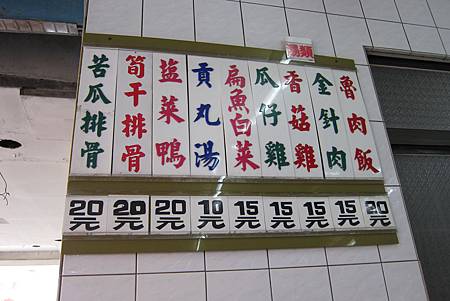 湯類
魯肉飯
金針肉
香菇雞
瓜仔雞
扁魚白菜
貢丸湯
盐菜鴨
筍干排骨
苦瓜排骨
20元
15元
15元
15元
15元
10元
20元
20元
20元